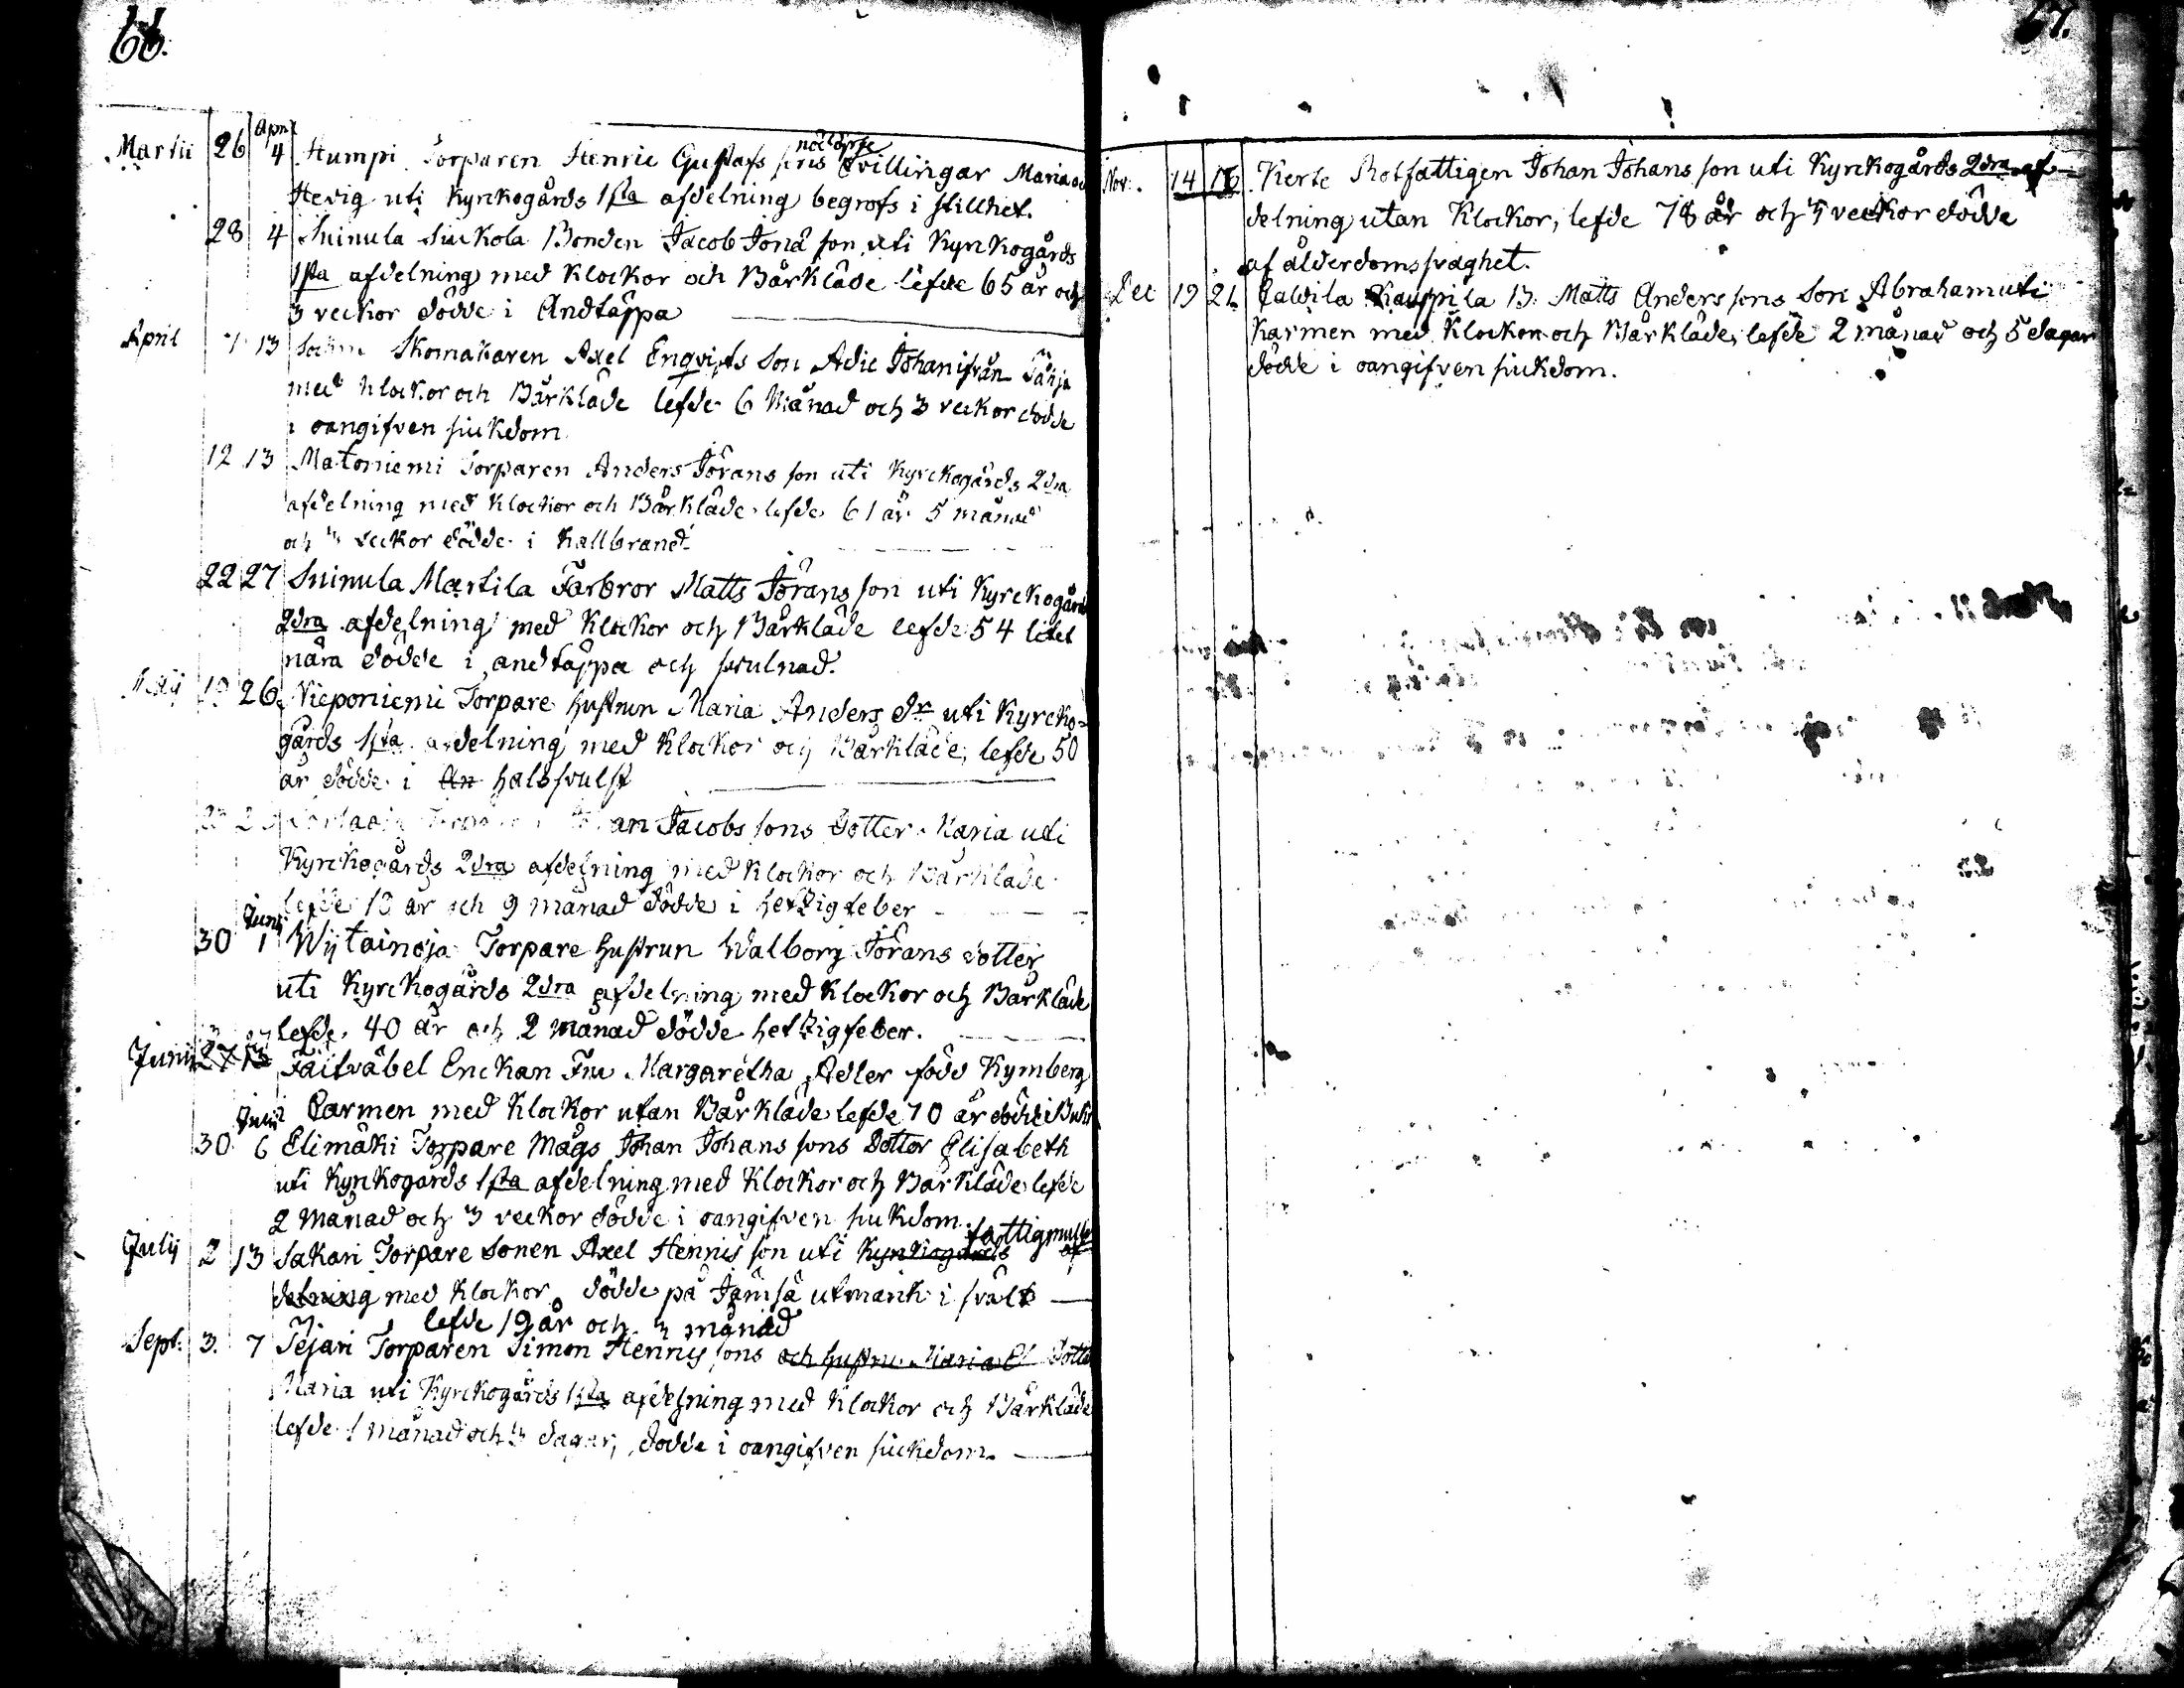 66.
Martii 26 Apri 4 Humpi Torparen Henric Gustafs sons nöddöpte Tvillingar Maria och
Hevig uti Kyrckogårds 1sta afdelning begrofs i stillhet.
28 4 Suinula Siukola Bonden Jacob Jona son uti Kyrckogårds
1sta afdelning med Klockor och Bårkläde lefde 65 år och
3 veckor dödde i Andtäppa
April 7 13 Skomakaren Axel Enqvists Son Adic Johan ifrån
med klockor och Bårkläde lefde 6 Månad och 3 veckor dödde
i oangifven siukdom
12 13 Matoniemi Torparen Anders Jörans son uti Kyrckogårds 2dra
afdelning med Klockor och Bårkläde lefde 61 år 5 månad
och 3 veckor dödde i Kallbrand
22 27 Suinula Martila Farbror Matts Jörans son uti Kyrckogårds
2dra afdelning med Klockor och Bårkläde lefde 54 litet
nära dödde i andtäppa och svulnad.
Maij 19 26 Nieponiemi Torpare hustrun Maria Anders dr uti Kyrcko=
gårds 1sta afdelning med Klockor och Bårkläde, lefde 50
år dödde i An halssvulst
Jacobs sons Dotter Maria uti
Kyrckogårds 2dra afdelning med Klockor och Bårkläde
lefde 18 år och 9 månad dödde i hetzig feber
30 Junij 1 Wytainoja Torpare hustrun Walborg Jörans dotter
uti Kyrckogårds 2dra afdelning med Klockor och Bårkläde
lefde 40 år och 2 månad dödde hetzig feber.
Junii 27 Fältväbel Enckan Fru Margaretha Adler född Kymberg
Carmen med Klockor utan Bårkläde lefde 70 år dödde i
30 Julii 6 Elimäki Torpare Mågs Johan Johans sons Dotter Elisabeth
uti Kyrckogårds 1sta afdelning med Klockor och Bårkläde lefde
2 Månad och 3 veckor dödde i oangifven siukdom.
Julij 2 13 Sakari Torpare Sonen Axel Hennis son uti Kyrckogårds fattigmulle af
delning med Klockor dödde på Jämsä utmark i svält
lefde 19 år och 3 månad
Sept. 3. 7 Jejari Torparen Simon Hennis sons och hustru Maria Dotter
Maria uti Kyrckogårds 1sta afdelning med Klockor och Bårkläde
lefde 1 månad och 3 dagar, dödde i oangifven siukdom.
67.
Nov. 14 16 Kerte Rotfattigen Johan Johans son uti Kyrckogårds 2dra af=
delning utan Klockor, lefde 78 år och 3 veckor dödde
af ålderdoms svaghet.
Dec 19 21 Caldila Kauppila B. Matts Anders sons Son Abraham uti
Karmen med Klockor och Bårkläde, lefde 2 månad och 5 dagar
dödde i oangifven siukdom.